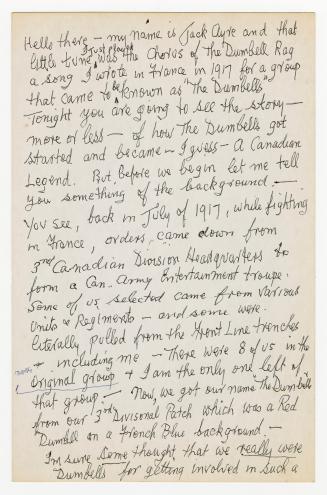 Hello there - my name is Jack Ayre and that
little tune I just played was the Chorus of The Dumbell Rag
a song I wrote in France in 1917 for a group
that came to be known as "The Dumbells"
Tonight you are going to see the story -
more or less - of how The Dumbells got
started and became - I guess - A Canadian
Legend. But before we begin let me tell
you something of the background. -
You see, back in July of 1917, while fighting
in France, orders, came down from
3rd Canadian Division Headquarters to
form a Can. Army Entertainment troupe.
Some of us selected came from various
Units & Regiments - and some were
literally pulled from the Front Line trenches
& including me - There were 8 of us in the
original group & I am the only one left of
that group. - Now, we got our name The Dumbells
from our 3rd Divisonal Patch which was a Red
Dumbell on a French Blue background. -
I'm sure some thought that we really were
Dumbells for getting involved in such a